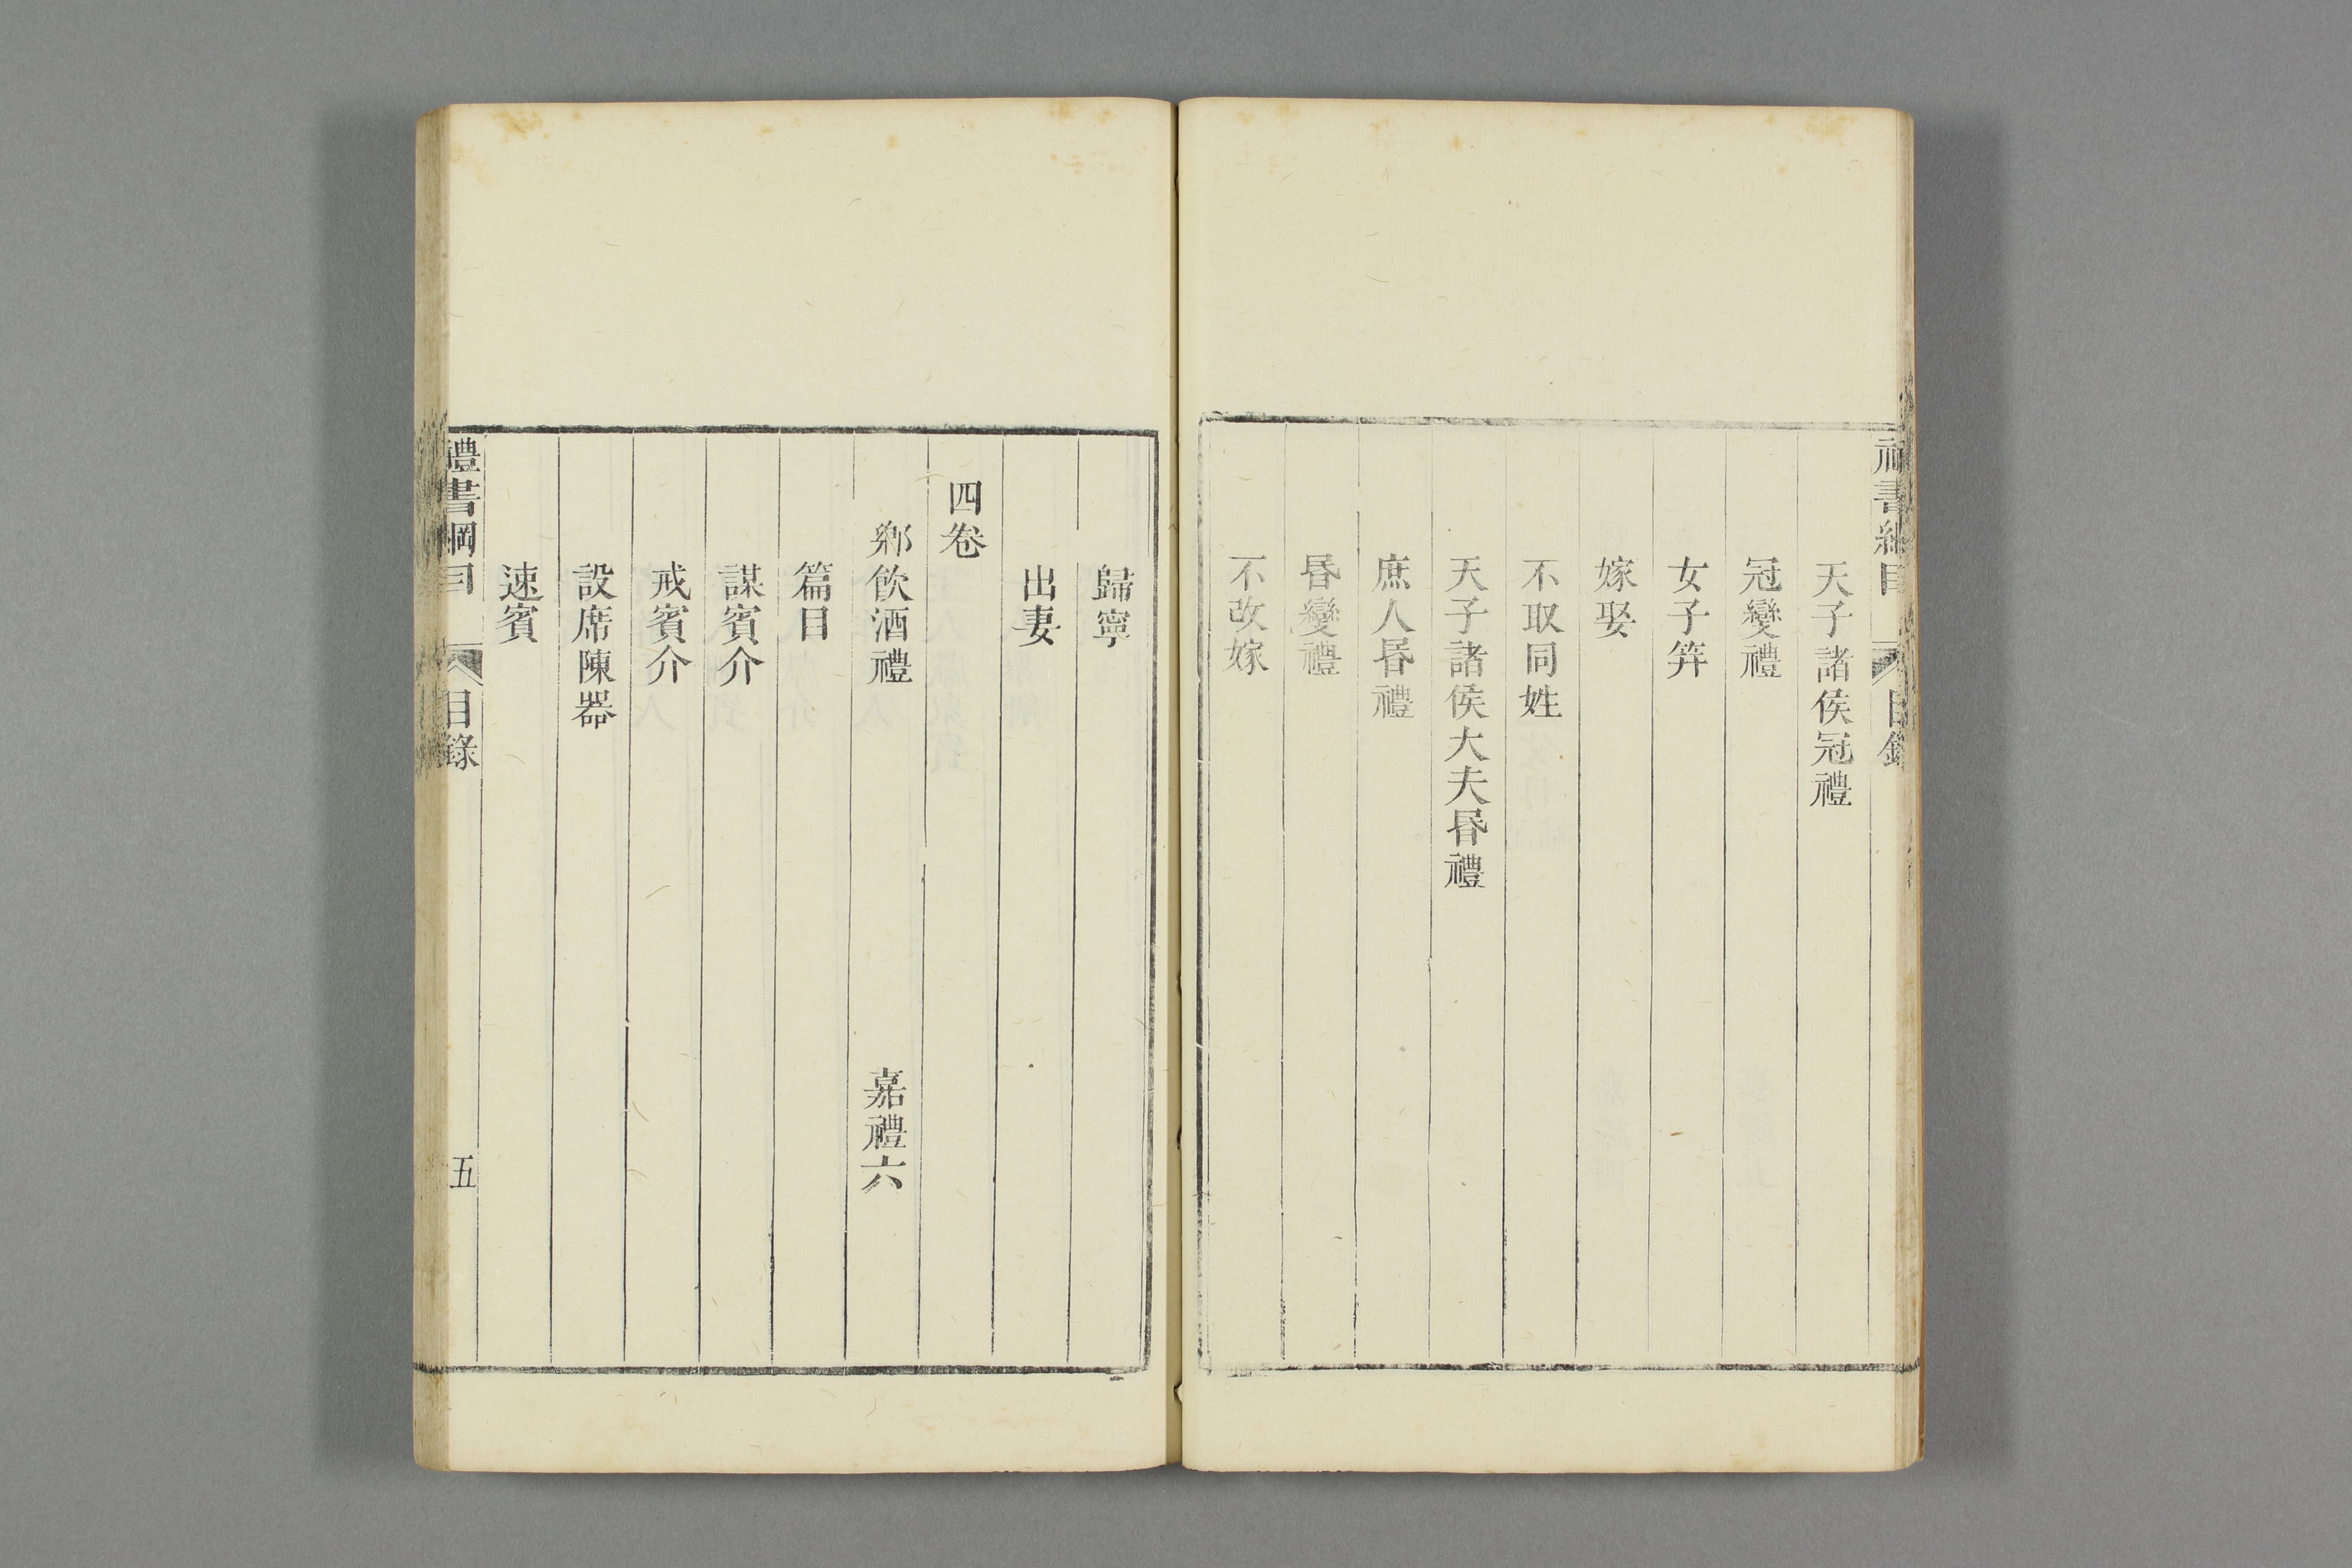 禮書綱目 目錄
天子諸侯冠禮
冠變禮
女子筓
嫁娶
不取同姓
天子諸侯大夫昏禮
庶人昏禮
昏變禮
不改嫁
歸寧
出妻
四卷
鄉飲酒禮 嘉禮六
篇目
謀賓介
戒賓介
設席陳器
速賓
禮書綱目 目錄 五